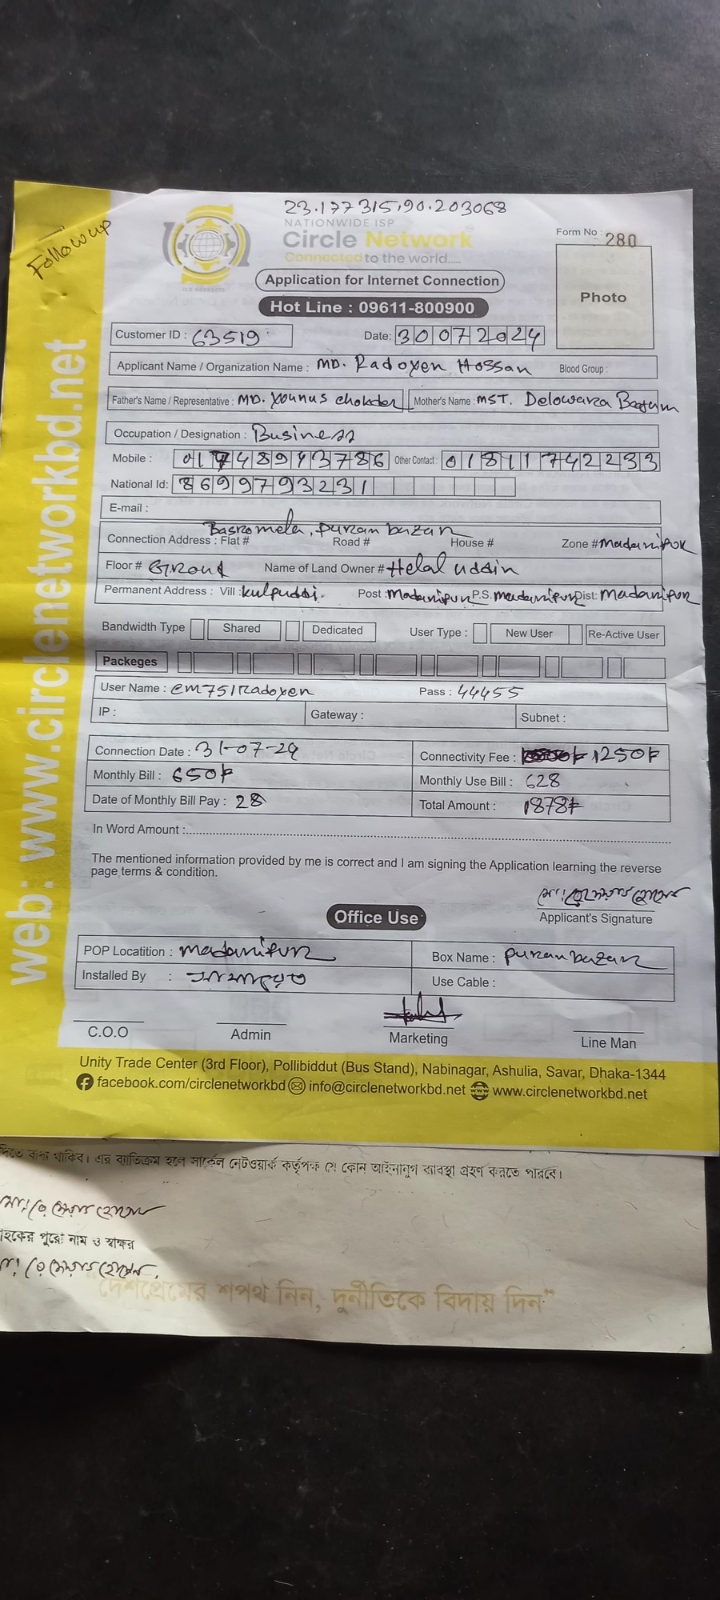 23.177315,90.203068
Followup
NATIONWIDE ISP
Circle Network
Connected to the world....
Form No 280
Photo
Application for Internet Connection
Hot Line : 09611-800900
Customer ID : 63519 Date: 30072024
Applicant Name / Organization Name : MD. Radoyen Hossan Blood Group :
Father's Name / Representative : MD. Younus chokder Mother's Name : MST. Delowara Begum
Occupation / Designation : Business
Mobile : 01748943786 Other Contact : 01811742233
National Id: 8699793231
E-mail :
Basromela, puran bazar
Connection Address : Flat # Road # House # Zone # Madaripur
Floor # Ground Name of Land Owner # Helal uddin
Permanent Address : Vill : kulpuddi. Post : Madaripur P.S. madaripur Dist: Madaripur
Bandwidth Type Shared Dedicated User Type : New User Re-Active User
Packeges
User Name : cm751Radoyen Pass : 44455
IP : Gateway : Subnet :
Connection Date : 31-07-24 Connectivity Fee : 1250৳
Monthly Bill : 650৳ Monthly Use Bill : 628
Date of Monthly Bill Pay : 28 Total Amount : 1878৳
In Word Amount :
The mentioned information provided by me is correct and I am signing the Application learning the reverse
page terms & condition.
Applicant's Signature
Office Use
POP Locatition : Madaripur Box Name : puran bazar
Installed By : Use Cable :
C.O.O Admin Marketing Line Man
Unity Trade Center (3rd Floor), Pollibiddut (Bus Stand), Nabinagar, Ashulia, Savar, Dhaka-1344
facebook.com/circlenetworkbd info@circlenetworkbd.net www.circlenetworkbd.net
web: www.circlenetworkbd.net
দিতে বাধ্য থাকিব। এর ব্যতিক্রম হলে সার্কেল নেটওয়ার্ক কর্তৃপক্ষ যে কোন আইনানুগ ব্যবস্থা গ্রহণ করতে পারবে।
হকের পুরো নাম ও স্বাক্ষর
"দেশপ্রেমের শপথ নিন, দুর্নীতিকে বিদায় দিন"